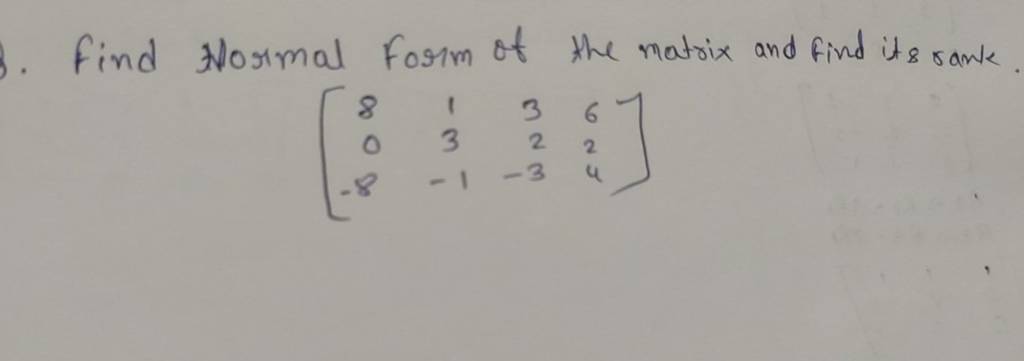 3. Find Normal Form of the matrix and find its rank.
8 1 3 6
0 3 2 2
-8 -1 -3 4